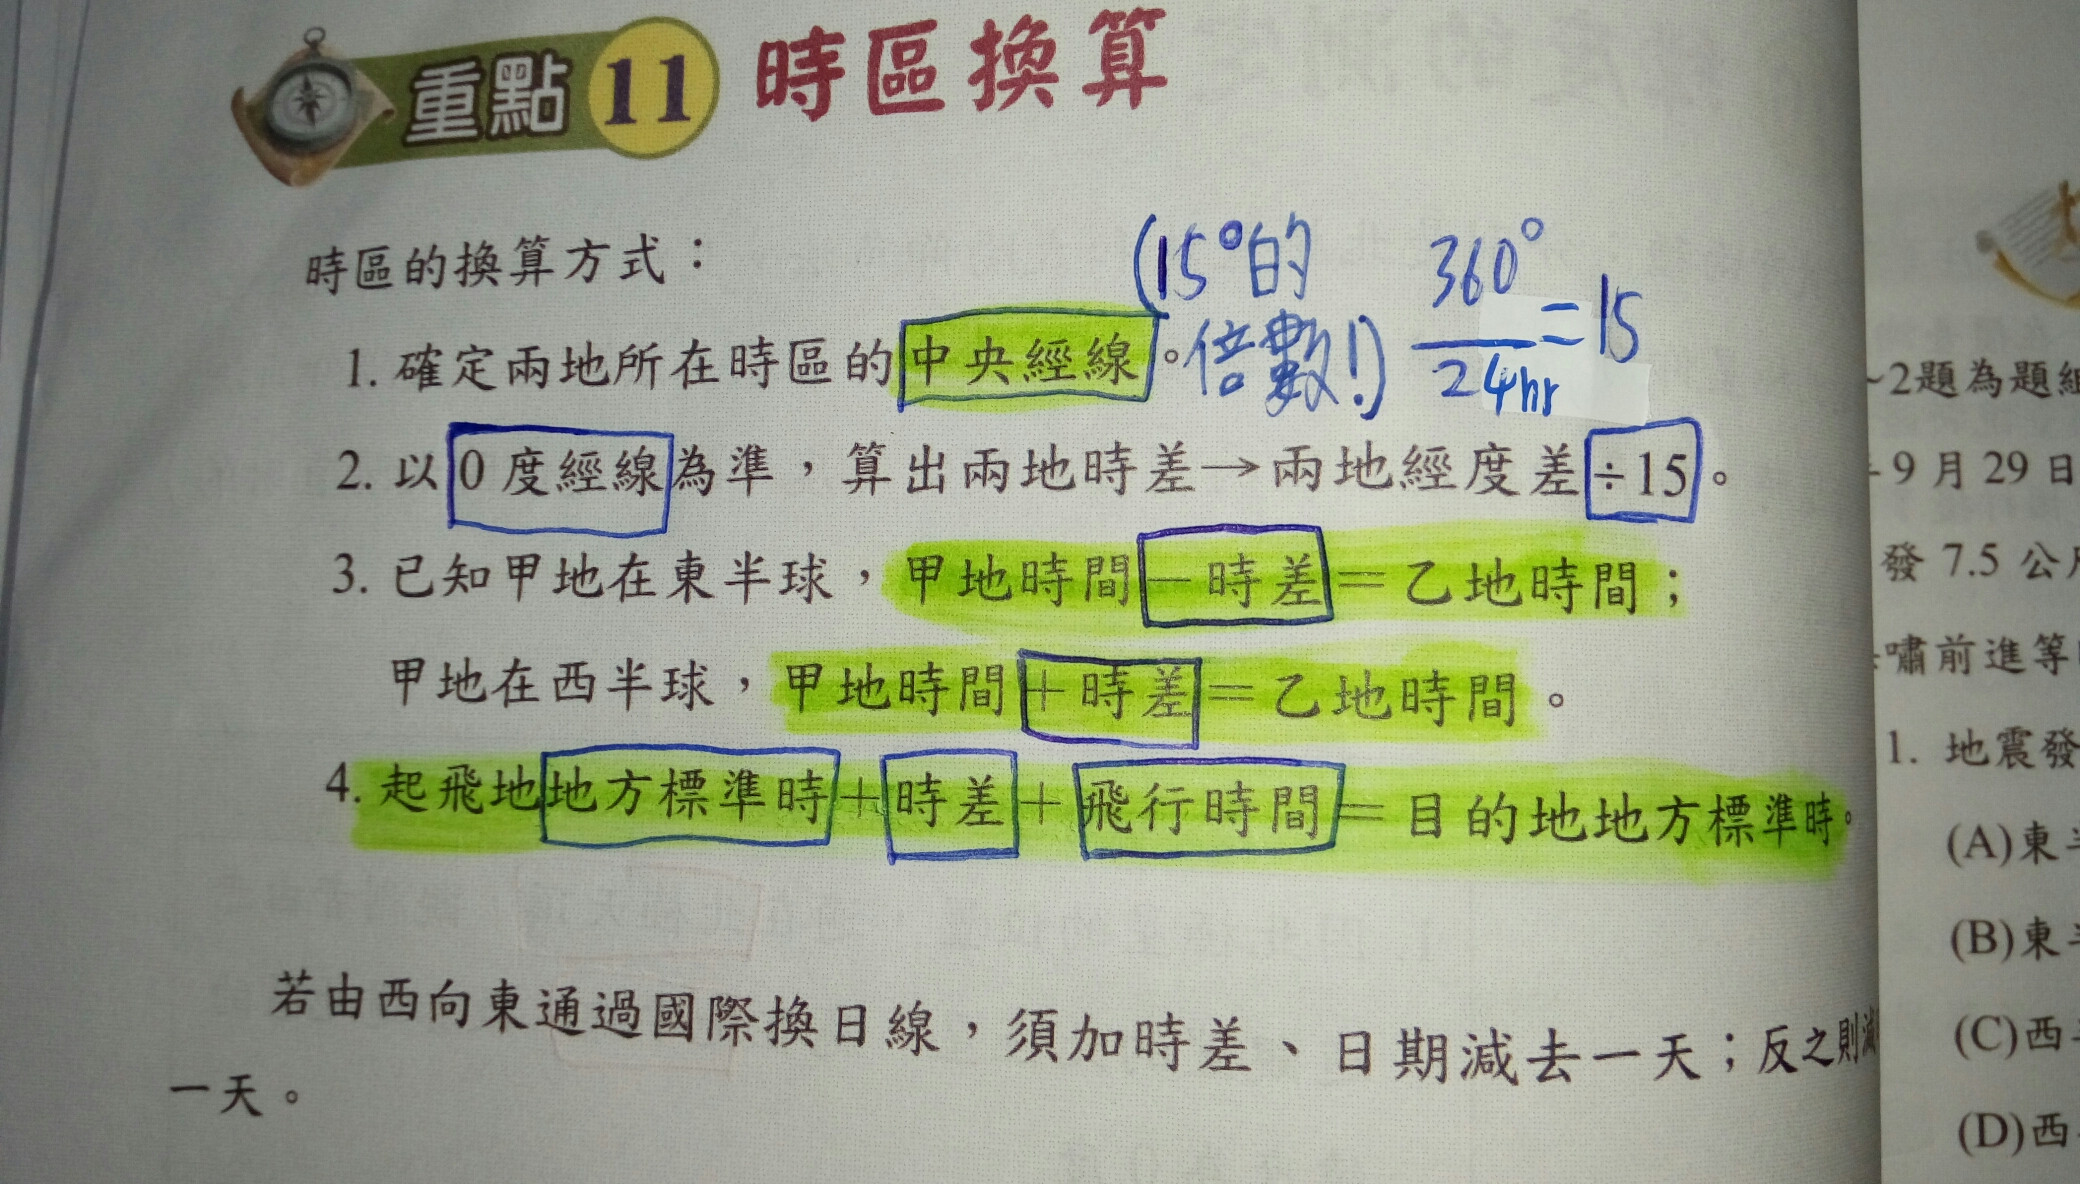 重點 11 時區換算
時區的換算方式：
(15°的
倍數!)
360°
24hr
=15
1. 確定兩地所在時區的中央經線。
2. 以0度經線為準，算出兩地時差→兩地經度差÷15。
3. 已知甲地在東半球，甲地時間－時差＝乙地時間；
甲地在西半球，甲地時間＋時差＝乙地時間。
4. 起飛地地方標準時＋時差＋飛行時間＝目的地地方標準時。
若由西向東通過國際換日線，須加時差、日期減去一天；反之則減
一天。
~2題為題組
9月29日
發 7.5 公
嘯前進等
1. 地震發
(A)東半
(B)東半
(C)西
(D)西